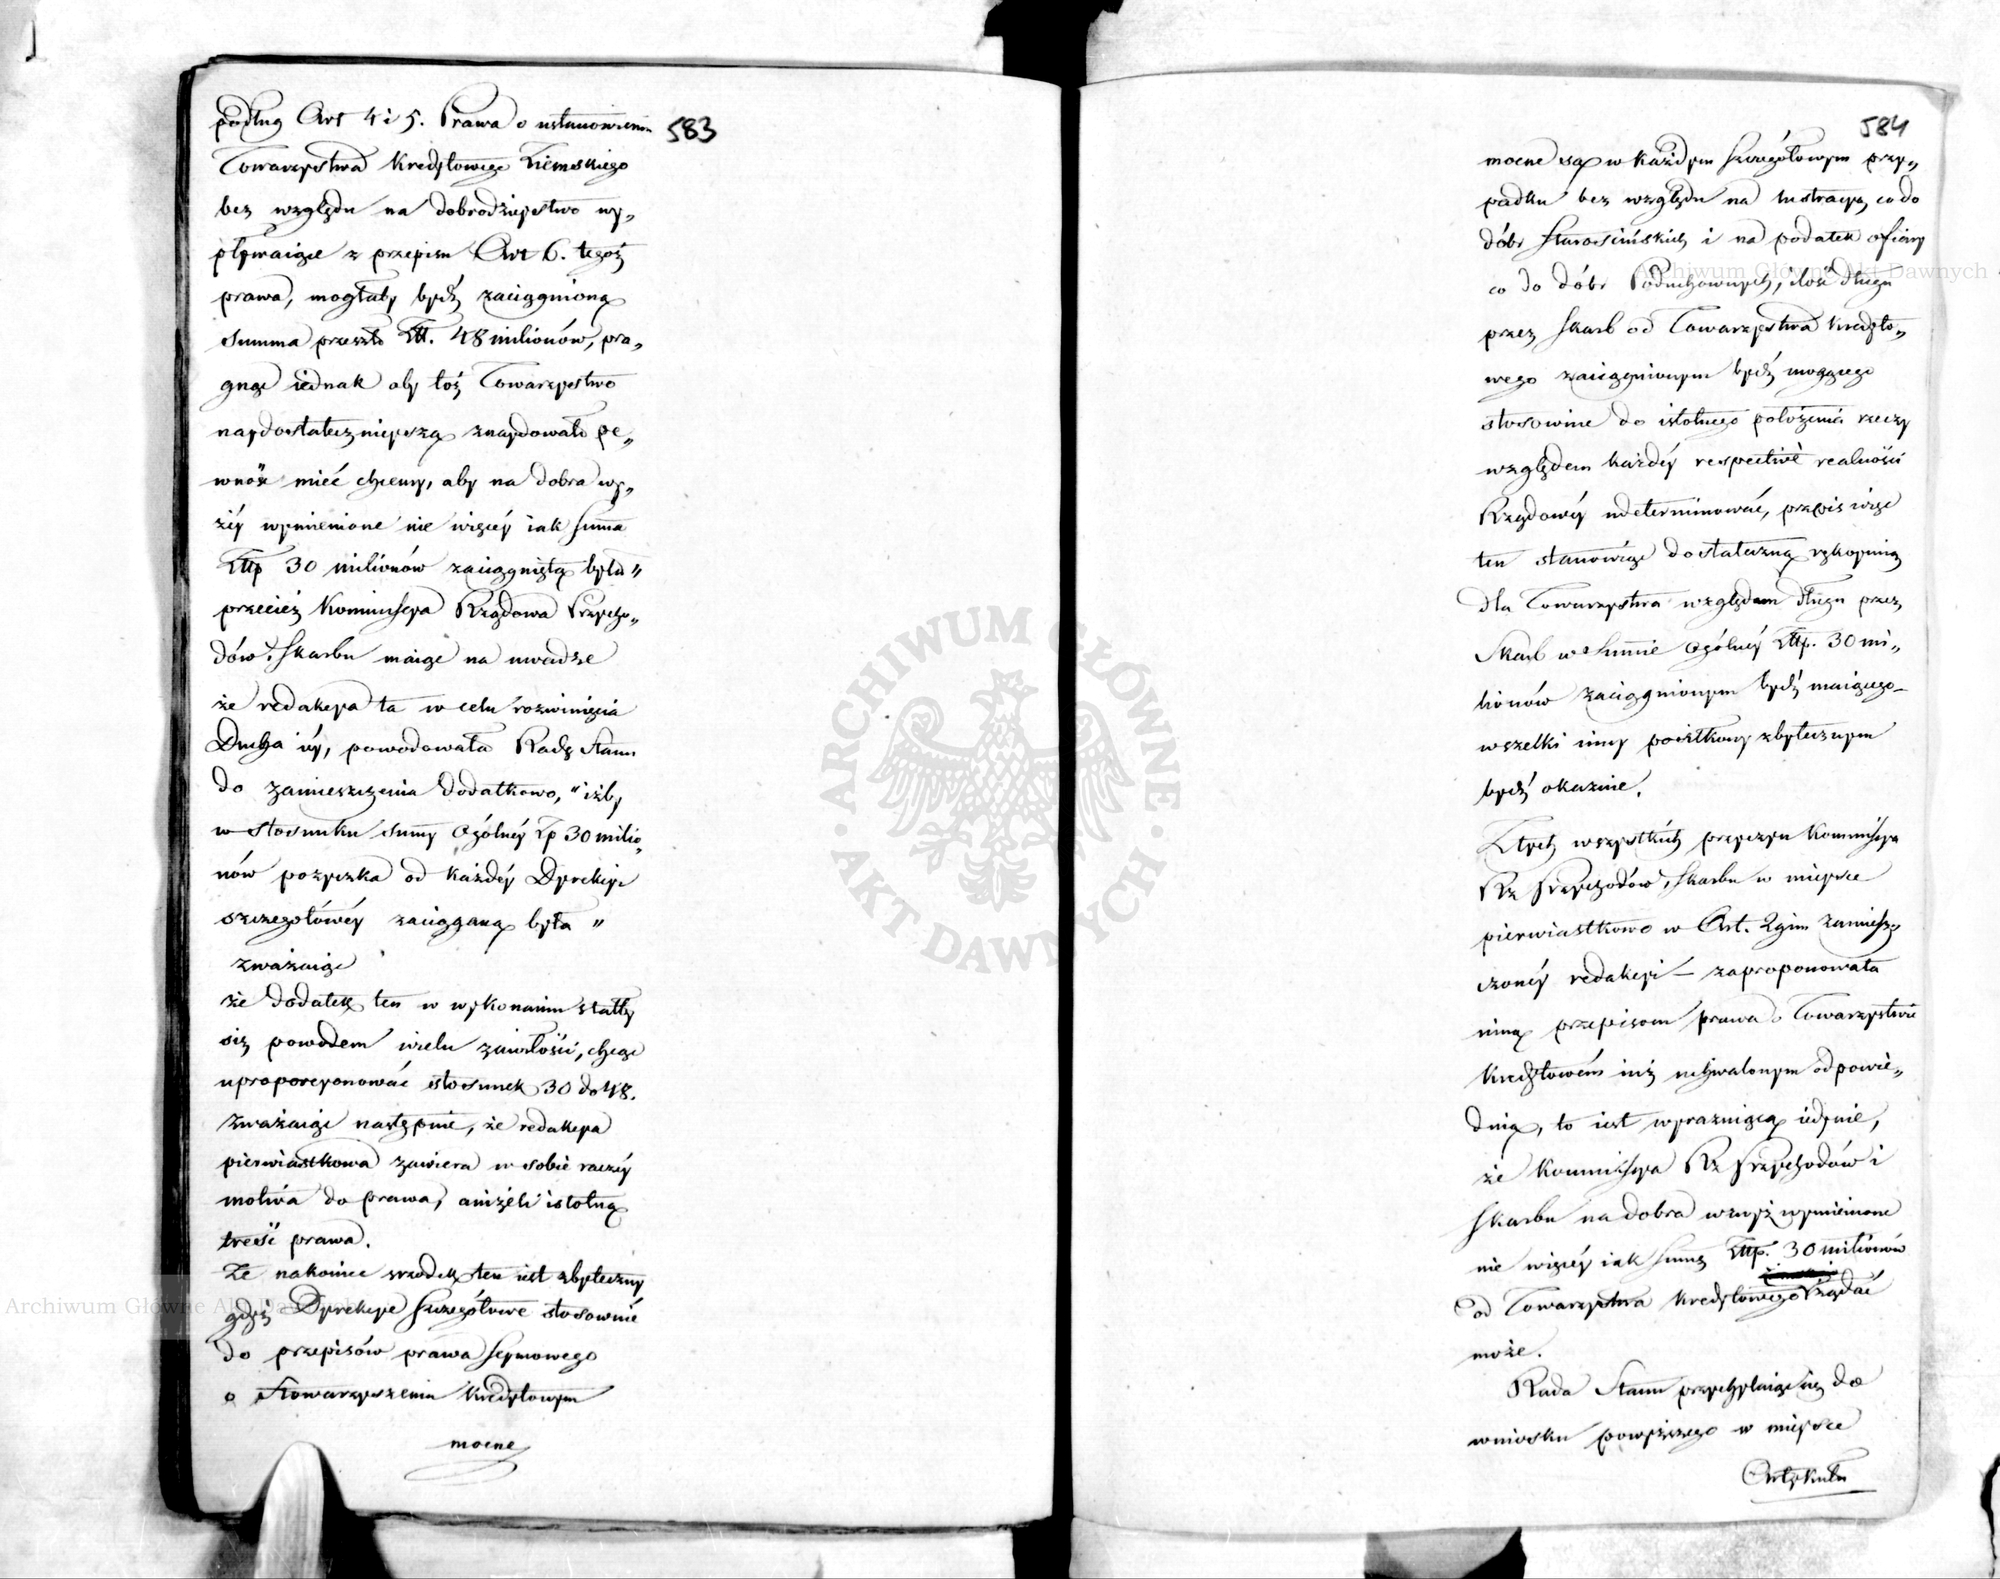 583
podług Art 4 i 5. Prawa o ustanowieniu
Towarzystwa Kredytowego Ziemskiego
bez względu na dobrodzieystwo wy„
pływaiące z przepisu Art 6. tegoż
prawa, mogłaby bydź zaciągnioną
summa przeszło Złł. 48 milionów, pra„
gnąc iednak aby toż Towarzystwo
naydostatecznieyszą znaydowało pe„
wność mieć chcemy, aby na dobra wy„
żéy wymienione nie więcéy iak summa
Złłp 30 milionów zaciągniętą była„
przecież Kommissya Rządowa Przycho„
dów i Skarbu maiąc na uwadze
że redakcya ta w celu rozwinięcia
Ducha iéy, powodowała Radę Stanu
do zamieszczenia dodatkowo, "iżby
w stosunku summy ogólnéy Złp 30 milio„
nów pożyczka od każdéy Dyrekcyi
szczegółowéy zaciąganą była "
zważaiąc
że dodatek ten w wykonaniu stałby
się powodem wielu zawiłości, chcąc
uproporcyonować stosunek 30 do 48.
Zważaiąc następnie, że redakcya
pierwiastkowa zawiera w sobie raczéy
motiva do prawa, aniżeli istotną
treść prawa.
Że nakoniec srzodek ten iest zbyteczny
gdyż Dyrekcye szczegółowe stosownie
do przepisów prawa seymowego
o Stowarzyszeniu Kredytowym
mocne
584
mocne są w każdym szczegółowym przy„
padku bez względu na lustracyą co do
dóbr Starościńskich i na podatek ofiary
co do dóbr Poduchownych, ilość długu
przez Skarb od Towarzystwa Kredyto„
wego zaciągnionym bydź mogącego
stosownie do istotnego położenia rzeczy
względem każdéy respective realności
Rządowéy udeterminować, przepis więc
ten stanowiąc dostateczną rękoymią
dla Towarzystwa względem długu przez
Skarb w summie ogólnéy Złłp. 30 mi„
lionów zaciągnionym bydź maiącego
wszelki inny posiłkowy zbytecznym
bydź okazuie.
Z tych wszystkich przyczyn Kommissya
Rz Przychodów i Skarbu w mieysce
pierwiastkowo w Art. 2gim zamiesz„
czonéy redakcyi – zaproponowała
inną przepisom prawa o Towarzystwie
Kredytowém iuż uchwalonym odpowie„
dnią, to iest wyrażaiącą iedynie,
że Kommissya Rz Przychodów i
Skarbu na dobra wzwyż wymienione
nie więcéy iak summę Złłp. 30 milionów
od Towarzystwa Kredytowego żądać
może.
Rada Stanu przychylaiąc się do
wniosku powyższego w mieysce
Artykułu
ARCHIWUM GŁÓWNE AKT DAWNYCH
Archiwum Główne Akt Dawnych
Archiwum Główne Akt Dawnych